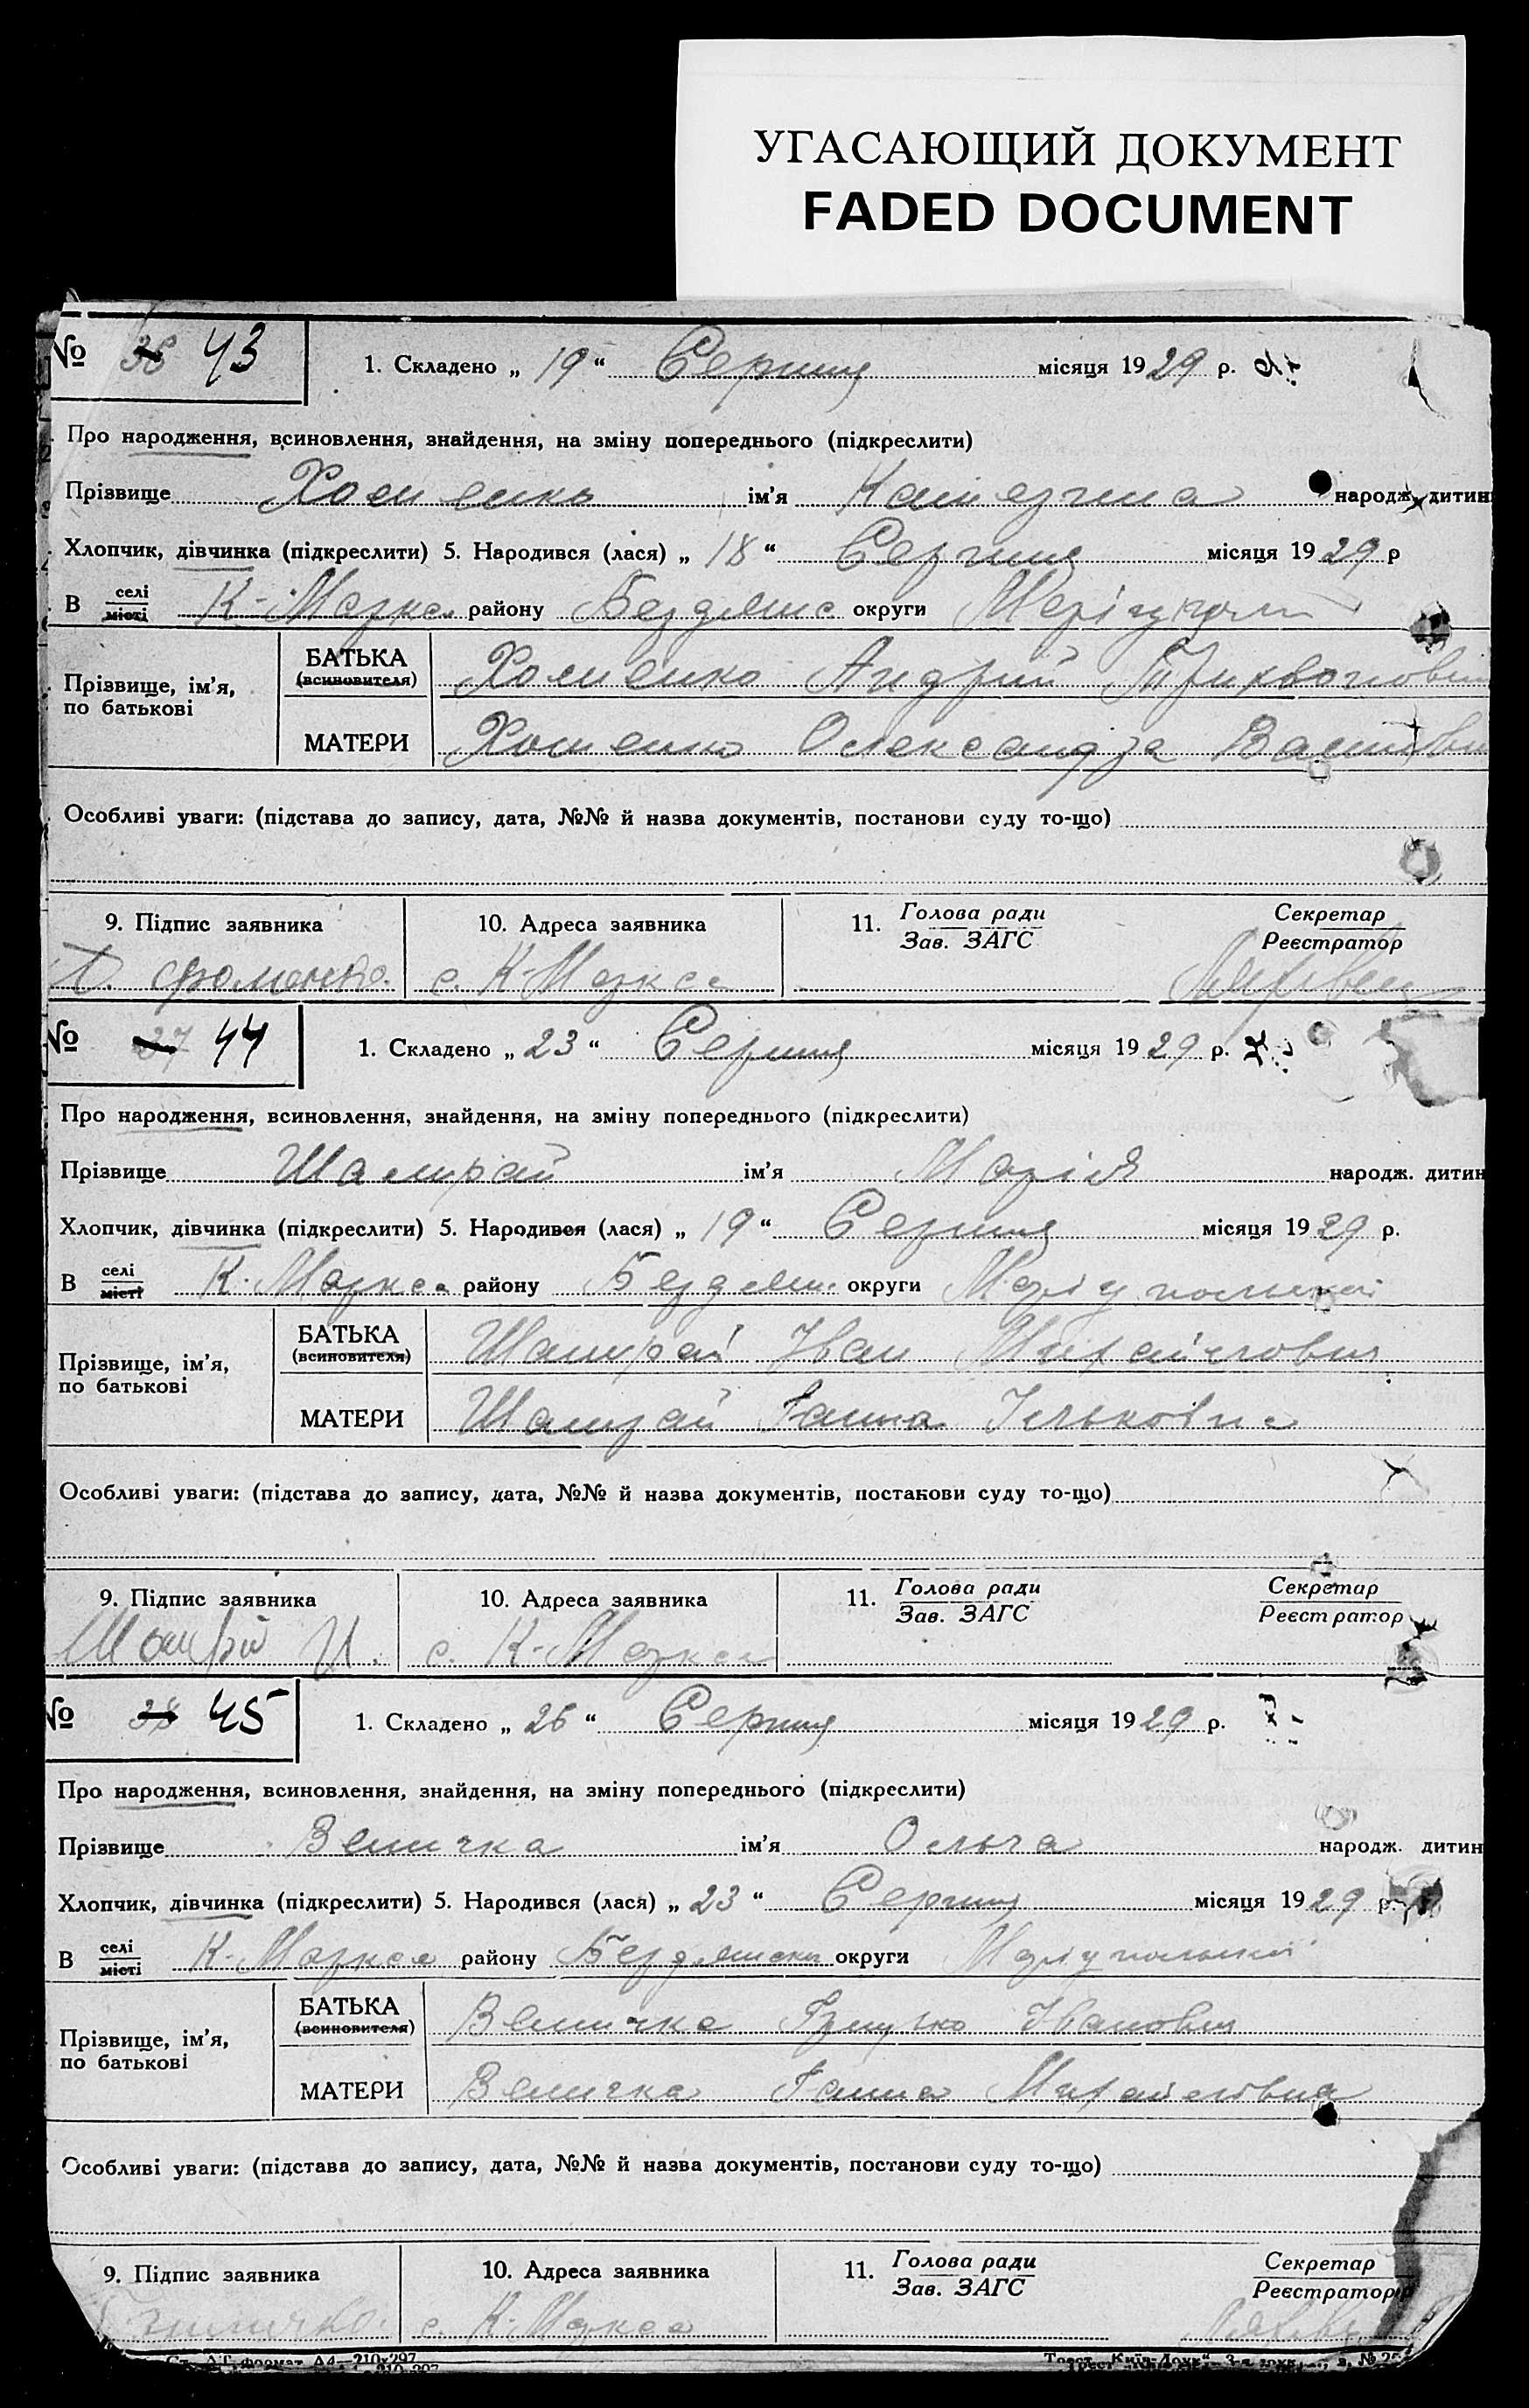 УГАСАЮЩИЙ ДОКУМЕНТ
FADED DOCUMENT
№ 36 43 1. Складено „ 19 “ Серпня місяця 1929 р.
Про народження, всиновлення, знайдення, на зміну попереднього (підкреслити)
Прізвище Хоменко ім'я Катерина народж. дитин
Хлопчик, дівчинка (підкреслити) 5. Народився (лася) „ 18 “ Серпня місяця 1929 р
В селі місті К-Маркса району округи
Прізвище, ім'я, по батькові
БАТЬКА (всиновителя) Хоменко Андрій
МАТЕРИ Хоменко Олександра
Особливі уваги: (підстава до запису, дата, №№ й назва документів, постанови суду то-що)
9. Підпис заявника 10. Адреса заявника 11. Голова ради Зав. ЗАГС Секретар Реєстратор
Фоменко. с. К-Маркса
№ 37 44 1. Складено „ 23 “ Серпня місяця 1929 р.
Про народження, всиновлення, знайдення, на зміну попереднього (підкреслити)
Прізвище Шамрай ім'я Марія народж. дитин
Хлопчик, дівчинка (підкреслити) 5. Народився (лася) „ 19 “ Серпня місяця 1929 р.
В селі місті К-Маркса району округи
Прізвище, ім'я, по батькові
БАТЬКА (всиновителя) Шамрай Іван Михайлович
МАТЕРИ Шамрай Ганна Ільковна
Особливі уваги: (підстава до запису, дата, №№ й назва документів, постанови суду то-що)
9. Підпис заявника 10. Адреса заявника 11. Голова ради Зав. ЗАГС Секретар Реєстратор
И. с. К-Маркса
№ 38 45 1. Складено „ 26 “ Серпня місяця 1929 р.
Про народження, всиновлення, знайдення, на зміну попереднього (підкреслити)
Прізвище Величка ім'я Ольга народж. дитин
Хлопчик, дівчинка (підкреслити) 5. Народився (лася) „ 23 “ Серпня місяця 1929 р.
В селі місті К-Маркса району округи
Прізвище, ім'я, по батькові
БАТЬКА (всиновителя) Величка Грицько Іванович
МАТЕРИ Величка Ганна Михайловна
Особливі уваги: (підстава до запису, дата, №№ й назва документів, постанови суду то-що)
9. Підпис заявника 10. Адреса заявника 11. Голова ради Зав. ЗАГС Секретар Реєстратор
с. К-Маркса